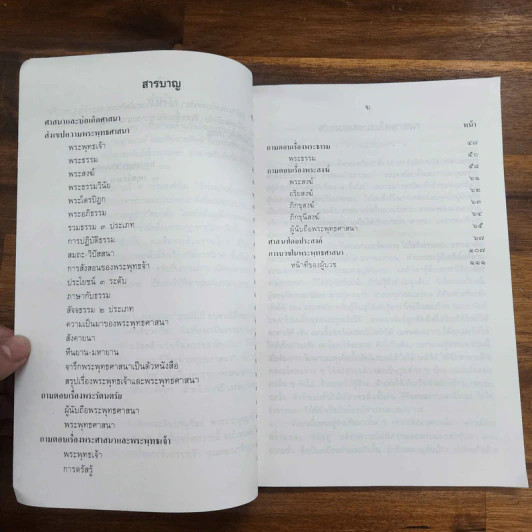 สารบาญ
ศาสนาและบ่อเกิดศาสนา
สังเขปความพระพุทธศาสนา
พระพุทธเจ้า
พระธรรม
พระสงฆ์
พระธรรมวินัย
พระไตรปิฎก
พระอภิธรรม
รวมธรรม ๓ ประเภท
การปฏิบัติธรรม
สมถะ-วิปัสสนา
การสั่งสอนของพระพุทธเจ้า
ประโยชน์ ๓ ระดับ
ภาษากับธรรม
สัจจธรรม ๒ ประเภท
ความเป็นมาของพระพุทธศาสนา
สังคายนา
หีนยาน-มหายาน
จารึกพระพุทธศาสนาเป็นตัวหนังสือ
สรุปเรื่องพระพุทธเจ้าและพระพุทธศาสนา
ถามตอบเรื่องพระรัตนตรัย
ผู้นับถือพระพุทธศาสนา
พระพุทธศาสนา
ถามตอบเรื่องพระศาสนาและพระพุทธเจ้า
พระพุทธเจ้า
การตรัสรู้
หน้า
ถามตอบเรื่องพระธรรม ๔๗
พระธรรม ๕๐
ถามตอบเรื่องพระสงฆ์ ๕๘
พระสงฆ์ ๖๑
อริยสงฆ์ ๖๒
ภิกขุสงฆ์ ๖๓
ภิกขุนีสงฆ์ ๖๔
ผู้นับถือพระพุทธศาสนา ๖๕
ศาสนาที่คนประสงค์ ๖๗
การบวชในพระพุทธศาสนา ๑๐๗
หน้าที่ของผู้บวช ๑๑๑